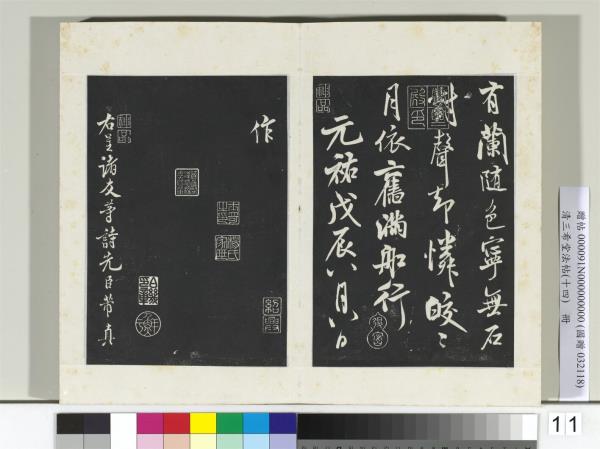 有蘭隨色寧無石
對聲却憐皎〻
月依舊滿船行
元祐戊辰八月八日
作
紹興
右呈諸友等詩先臣芾真
贈帖 000091N000000000 (圖贈 032118)
清三希堂法帖(十四) 冊
11